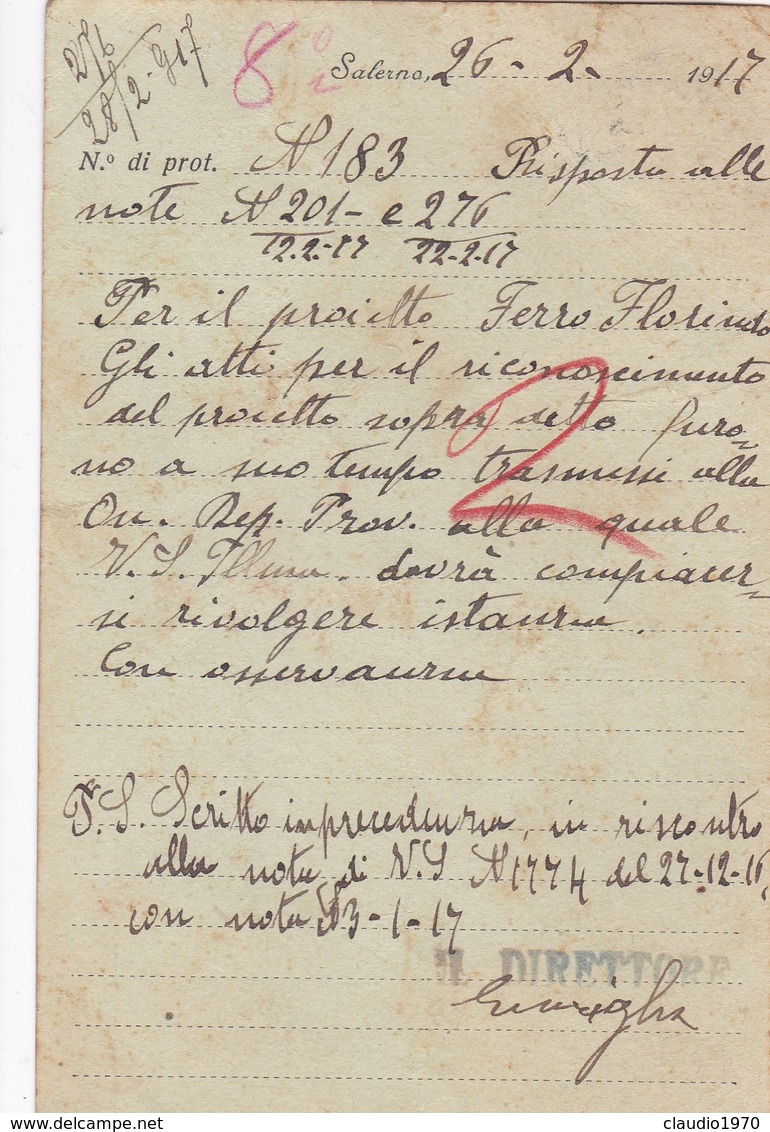 276
28/2-917
8°
2
Salerno, 26-2-1917
N.º di prot. N 183 Risposta alle
note N 201- e 276
12.2-17 22-2-17
Per il proietto Ferro Florindo
Gli atti per il riconoscimento
del proietto sopra detto furo=
no a suo tempo trasmessi alla
On. Dep. Prov. alla quale
V.S. Illma dovrà compiacer=
si rivolgere istanza.
Con osservanza
P.S. Scritto in precedenza, in riscontro
alla nota di V.S N 1774 del 27-12-16,
con nota 3-1-17
IL DIRETTORE
claudio1970